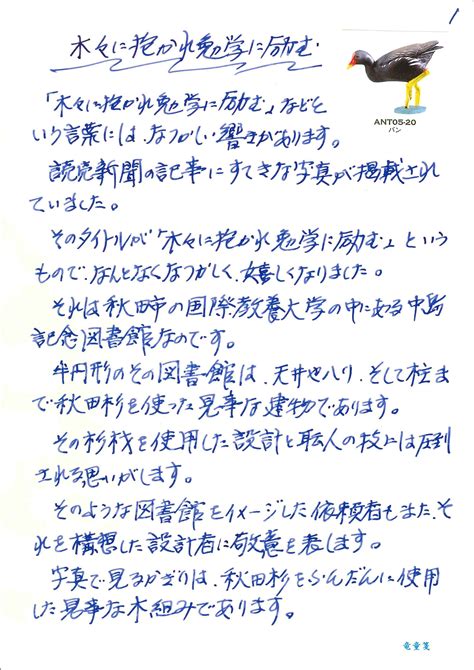 1
木々に抱かれ勉学に励む
ANT05-20
バン
「木々に抱かれ勉学に励む」などと
いう言葉には、なつかしい響きがあります。
読売新聞の記事にすてきな写真が掲載され
ていました。
そのタイトルが「木々に抱かれ勉学に励む」という
もので、なんとなくなつかしく、嬉しくなりました。
それは秋田市の国際教養大学の中にある中嶋
記念図書館なのです。
半円形のその図書館は、天井やハリ、そして柱ま
で秋田杉を使った見事な建物であります。
その杉材を使用した設計と職人の技には圧倒
される思いがします。
そのような図書館をイメージした依頼者もまた、そ
れを構想した設計者に敬意を表します。
写真で見るかぎりは、秋田杉をふんだんに使用
した見事な木組みであります。
竜童笈